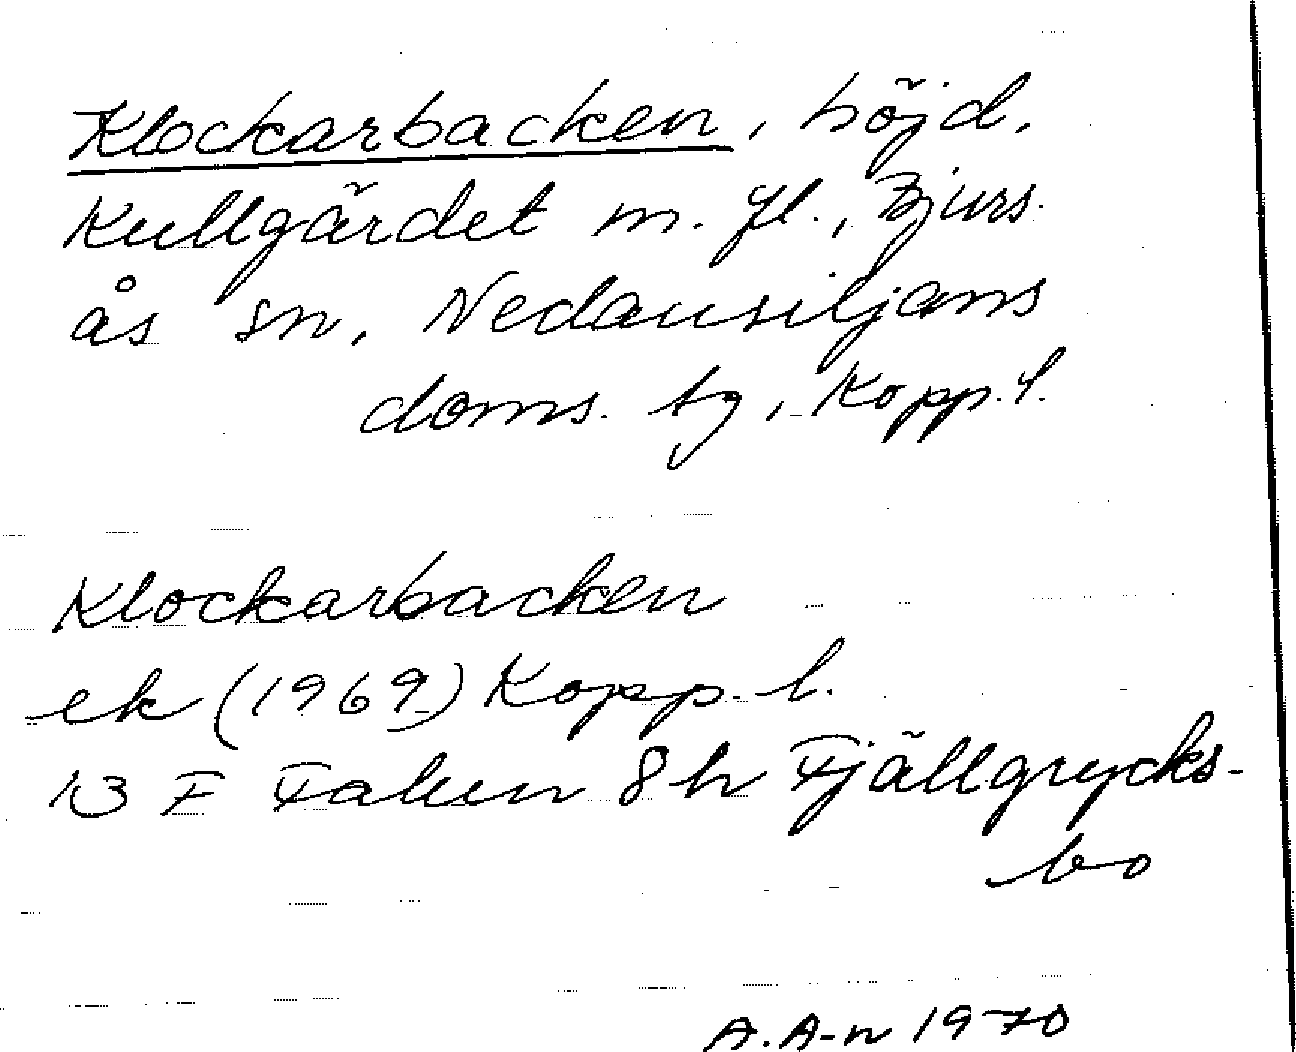 Klockarbacken, höjd,
Kullgärdet m. fl., Bjurs-
ås sn, Nedansiljans
doms. tg, Kopp. l.
Klockarbacken
ek (1969) Kopp. l.
13 F Falun 8 h Fjällgrycks-
bo
A. A-n 1970